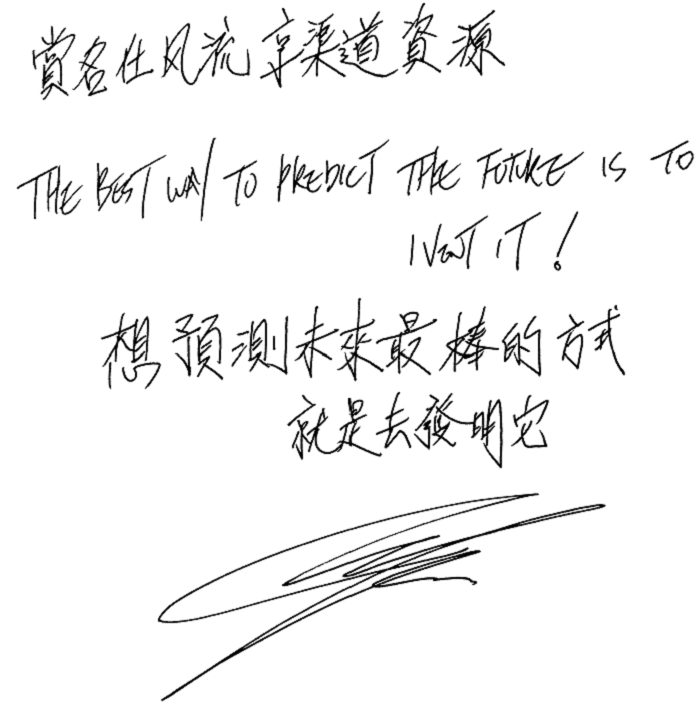 賞名仕风流享渠道資源
THE BEST WAY TO PREDICT THE FUTURE IS TO
INVENT IT!
想預測未來最棒的方式
就是去發明它